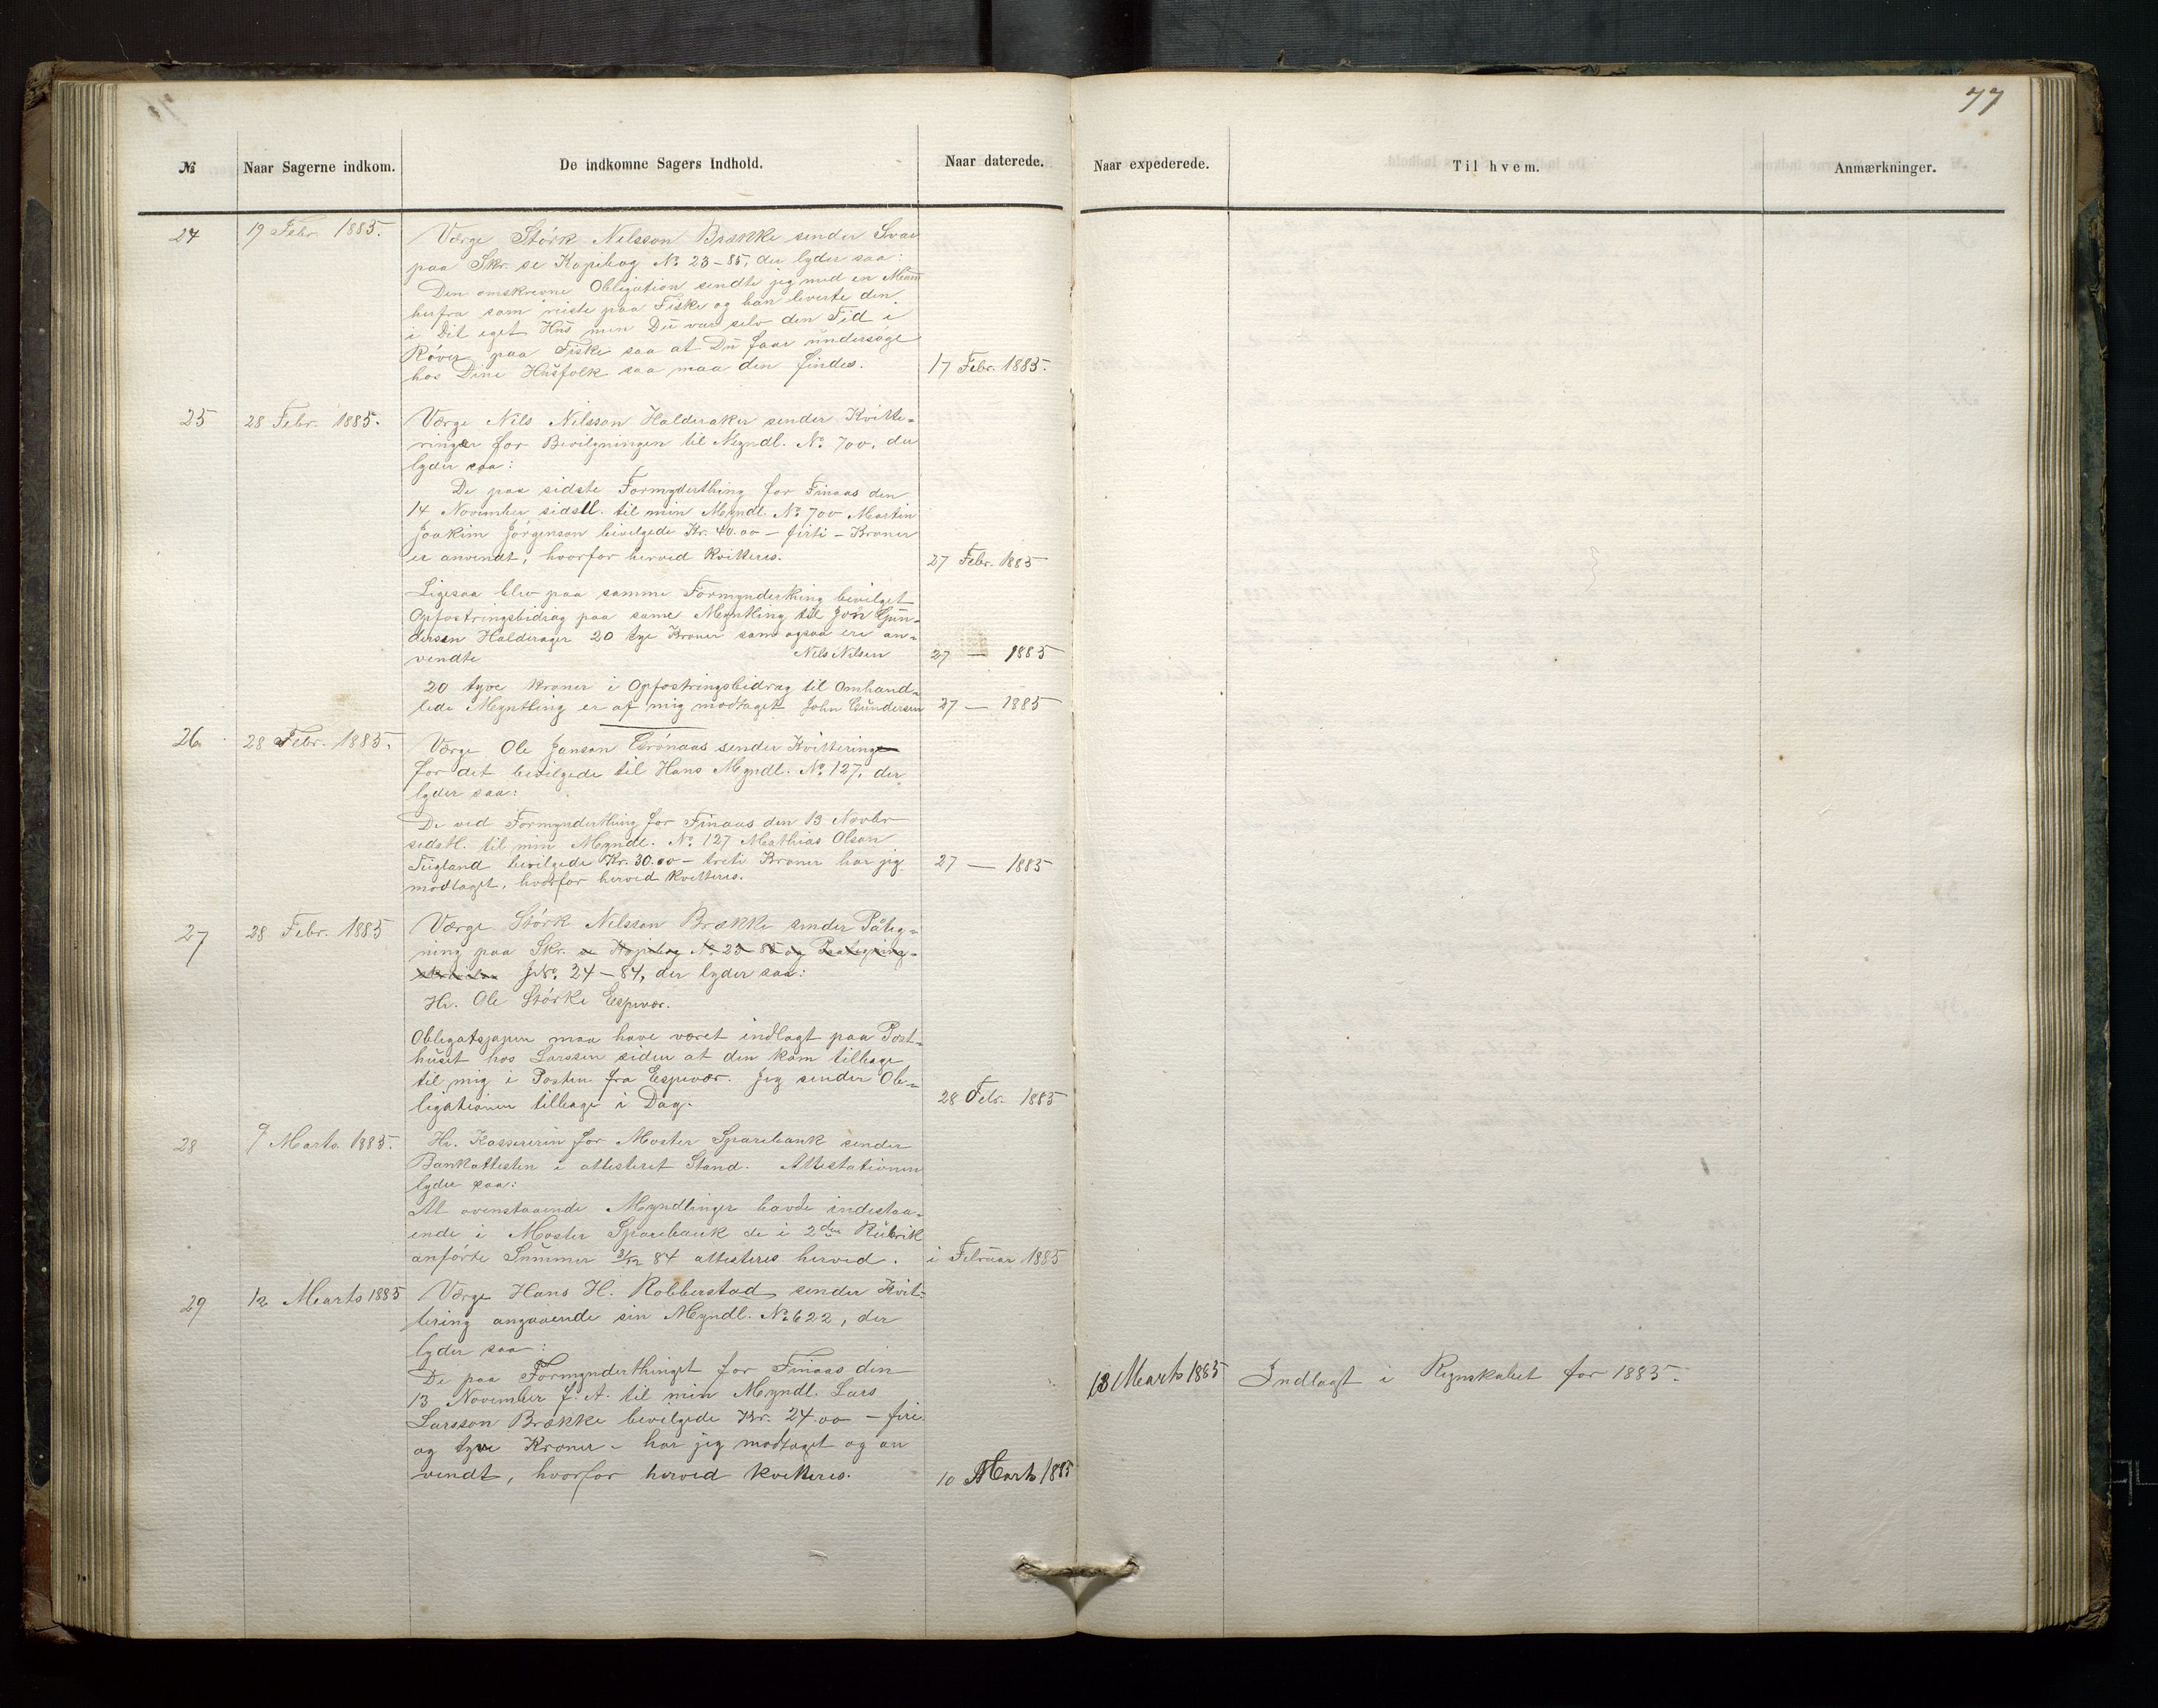 77
№ Naar Sagerne indkom. De indkomne Sagers Indhold. Naar daterede. Naar expederede. Til hvem. Anmærkninger.
24 19 Febr. 1885. Værge Störk Nilsson Brække sender Svar
paa Skr. se Kopibog No. 23-85, der lyder saa:
Den omskrevne Obligation sendte jeg med en Mann
herfra som reiste paa Fiske og han leverte den
i Dit eget Hus men Du var selv den Tid i
Röver paa Fiske saa at Du faar undersöge
hos Dine Husfolk saa maa den findes. 17 Febr. 1885.
25 28 Febr. 1885. Værge Nils Nilsson Halderaker sender Kvitte-
ringer for Bevilgningen til Myndl. No. 700, der
lyder saa:
De paa sidste Formynderthing for Finaas den
14 November sidstl. til min Myndl. No. 700 Martin
Joakim Jörgenson bevilgede Kr. 40.00 - firti - Kroner
er anvendt, hvorfor herved kvitteres. 27 Febr. 1885
Ligesaa blev paa samme Formynderthing bevilget
Opfostringsbidrag paa same Myntling til John Gun-
dersen Halderager 20 tye Kroner som ogsaa ere an-
vendte Nils Nilsen 27 — 1885
20 tyve kroner i Opfostringsbidrag til Omhand-
lede Myntling er af mig modtaget John Gundersen 27 — 1885
26 28 Febr. 1885. Værge Ole Janson Grönaas sender Kvittering
for det bevilgede til Hans Myndl. No. 127, der
lyder saa:
De ved Formynderthing for Finaas den 13 Novbr
sidstl. til min Myndl. No. 127 Mathias Olson
Tugland bevilgede Kr. 30.00 - treti Kroner har jeg
modtaget, hvorfor herved kvitteres. 27 — 1885
27 28 Febr. 1885 Værge Störk Nilsson Brække sender Påteg-
ning paa Skr. se Kopibog No. 23-85 og Paategning-
J.No. 24-84, der lyder saa:
Hr. Ole Störke Espevær.
Obligatsjonen maa have været indlagt paa Post-
huset hos Larssen siden at den kom tilbage
til mig i Posten fra Espevær. Jeg sender Ob-
ligationen tilbage i Dag. 28 Febr. 1885
28 9 Marts 1885. Hr. Kassereren for Moster Sparebank sender
Bankattesten i attesteret Stand. Attestationen
lyder saa:
At ovenstaaende Myndlinger havde indestaa-
ende i Moster Sparebank de i 2den Rubrik
anförte Summer 31/12 84 attesteres herved. i Februar 1885
29 12 Marts 1885 Værge Hans H. Robberstad sender Kvit-
tering angaaende sin Myndl. No. 622, der
lyder saa:
De paa Formynderthinget for Finaas den
13 November f. A. til min Myndl. Lars 13 Marts 1885 Indlagt i Regnskabet for 1885.
Larsson Brække bevilgede Kr. 24.00 - fire
og tyve Kroner - har jeg modtaget og an
vendt, hvorfor herved kvitteres. 10 Marts 1885